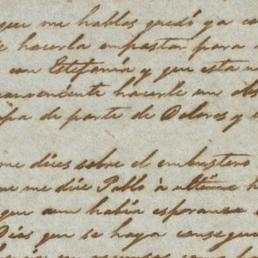 que me hablas quedó ya co
hacerla empastar para
con Estefanía y que esta
conveniente hacerle un obs
de parte de Dolores y
me dices sobre el embustero
me me dice Pablo à ultima h
que aun habia esperanza
Dios que se haya consegui